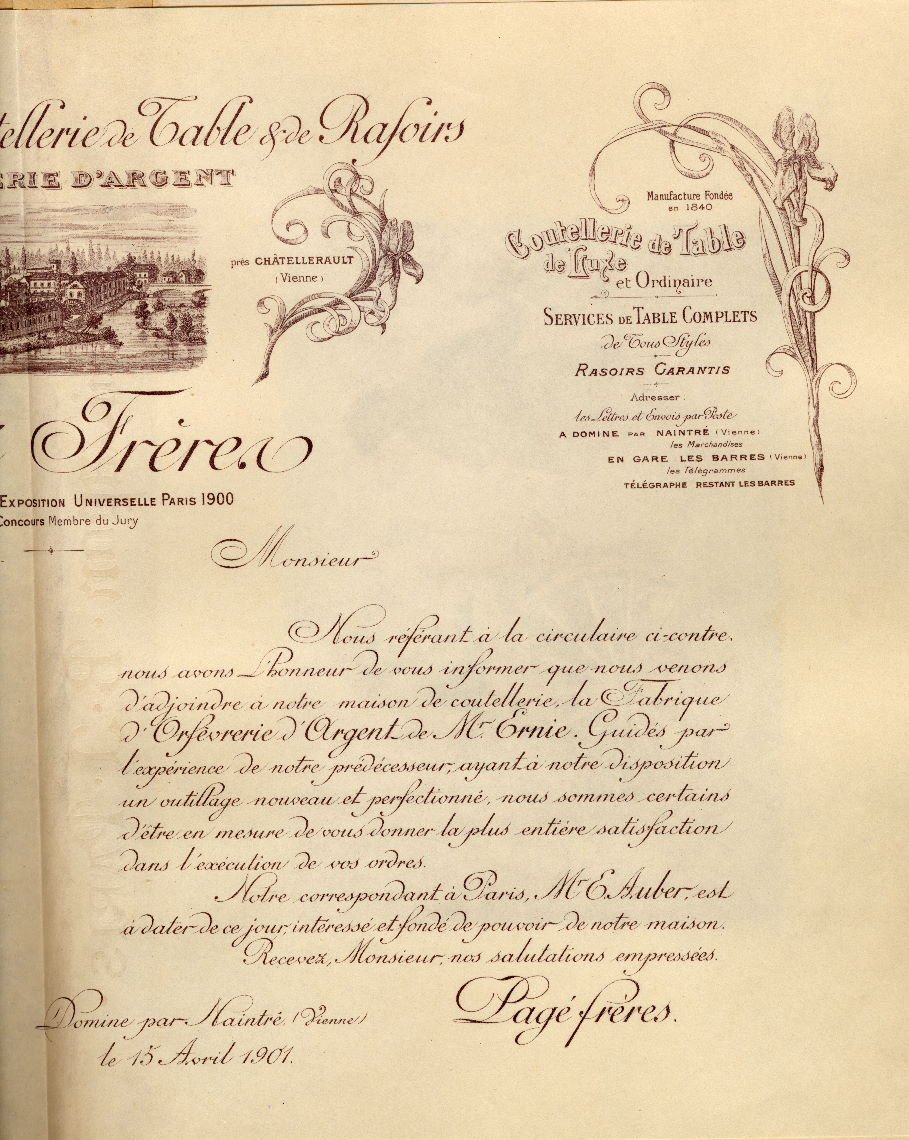 tellerie de Table & de Rasoirs
ERIE D'ARGENT
près CHÂTELLERAULT
(Vienne)
Frères
EXPOSITION UNIVERSELLE PARIS 1900
Concours Membre du Jury
Manufacture Fondée
en 1840
Coutellerie de Table
de Luxe
et Ordinaire
SERVICES DE TABLE COMPLETS
de Tous Styles
RASOIRS GARANTIS
Adresser :
les Lettres et Envois par Poste
A DOMINE PAR NAINTRÉ (Vienne)
les Marchandises
EN GARE LES BARRES (Vienne)
les Télégrammes
TÉLÉGRAPHE RESTANT LES BARRES
Monsieur
Nous référant à la circulaire ci-contre,
nous avons L'honneur de vous informer que nous venons
d'adjoindre à notre maison de coutellerie, la Fabrique
d'Orfèvrerie d'Argent de Mr. Ernie. Guidés par
l'expérience de notre prédécesseur, ayant à notre disposition
un outillage nouveau et perfectionné, nous sommes certains
d'être en mesure de vous donner la plus entière satisfaction
dans l'exécution de vos ordres.
Notre correspondant à Paris, Mr E. Auber, est
à dater de ce jour, intéressé et fondé de pouvoir de notre maison.
Recevez, Monsieur, nos salutations empressées.
Pagé frères.
Domine par Naintré (Vienne)
le 15 Avril 1901.